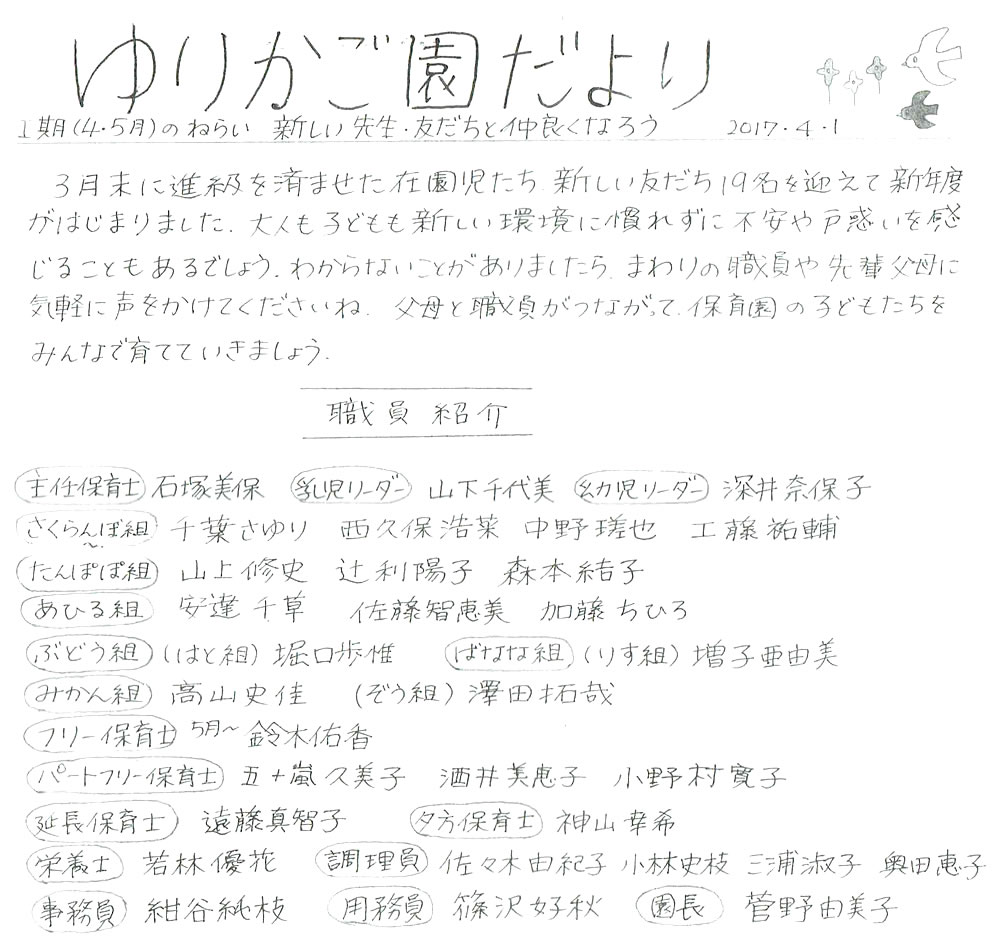 ゆりかご園だより
1期(4・5月)のねらい 新しい先生・友だちと仲良くなろう 2017・4・1
3月末に進級を済ませた在園児たち、新しい友だち19名を迎えて新年度
がはじまりました。大人も子どもも新しい環境に慣れずに不安や戸惑いを感
じることもあるでしょう。わからないことがありましたら、まわりの職員や先輩父母に
気軽に声をかけてくださいね。父母と職員がつながって、保育園の子どもたちを
みんなで育てていきましょう。
職員紹介
主任保育士 石塚美保 乳児リーダー 山下千代美 幼児リーダー 深井奈保子
さくらんぼ組 千葉さゆり 西久保浩菜 中野瑳也 工藤祐輔
たんぽぽ組 山上修史 辻利陽子 森本結子
あひる組 安達千草 佐藤智恵美 加藤ちひろ
ぶどう組 (はと組) 堀口歩惟 ばなな組 (りす組) 増子亜由美
みかん組 高山史佳 (ぞう組) 澤田拓哉
フリー保育士 5月~ 鈴木佑香
パートフリー保育士 五十嵐久美子 酒井美恵子 小野村寛子
延長保育士 遠藤真智子 夕方保育士 神山幸希
栄養士 若林優花 調理員 佐々木由紀子 小林史枝 三浦淑子 奥田恵子
事務員 紺谷純枝 用務員 篠沢好秋 園長 菅野由美子